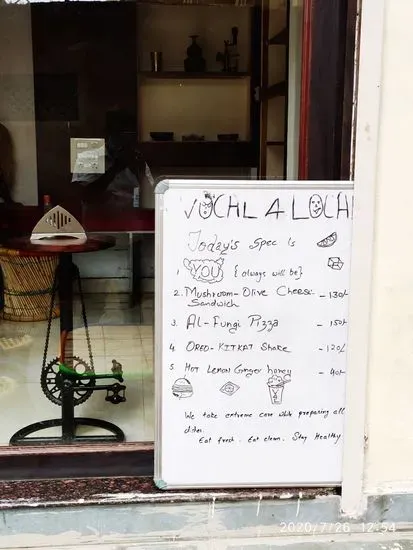 VOCAL 4 LOCAL
Today's Specls
1. YOU {always will be}
2. Mushroom-Olive Cheese - 130/-
Sandwich
3. Al-Fungi Pizza - 150/-
4. OREO-KITKAT Shake - 120/-
5. Hot Lemon Ginger honey - 40/-
We take extreme care while preparing all
dishes.
Eat fresh. Eat clean. Stay Healthy
2020/7/26 12:54